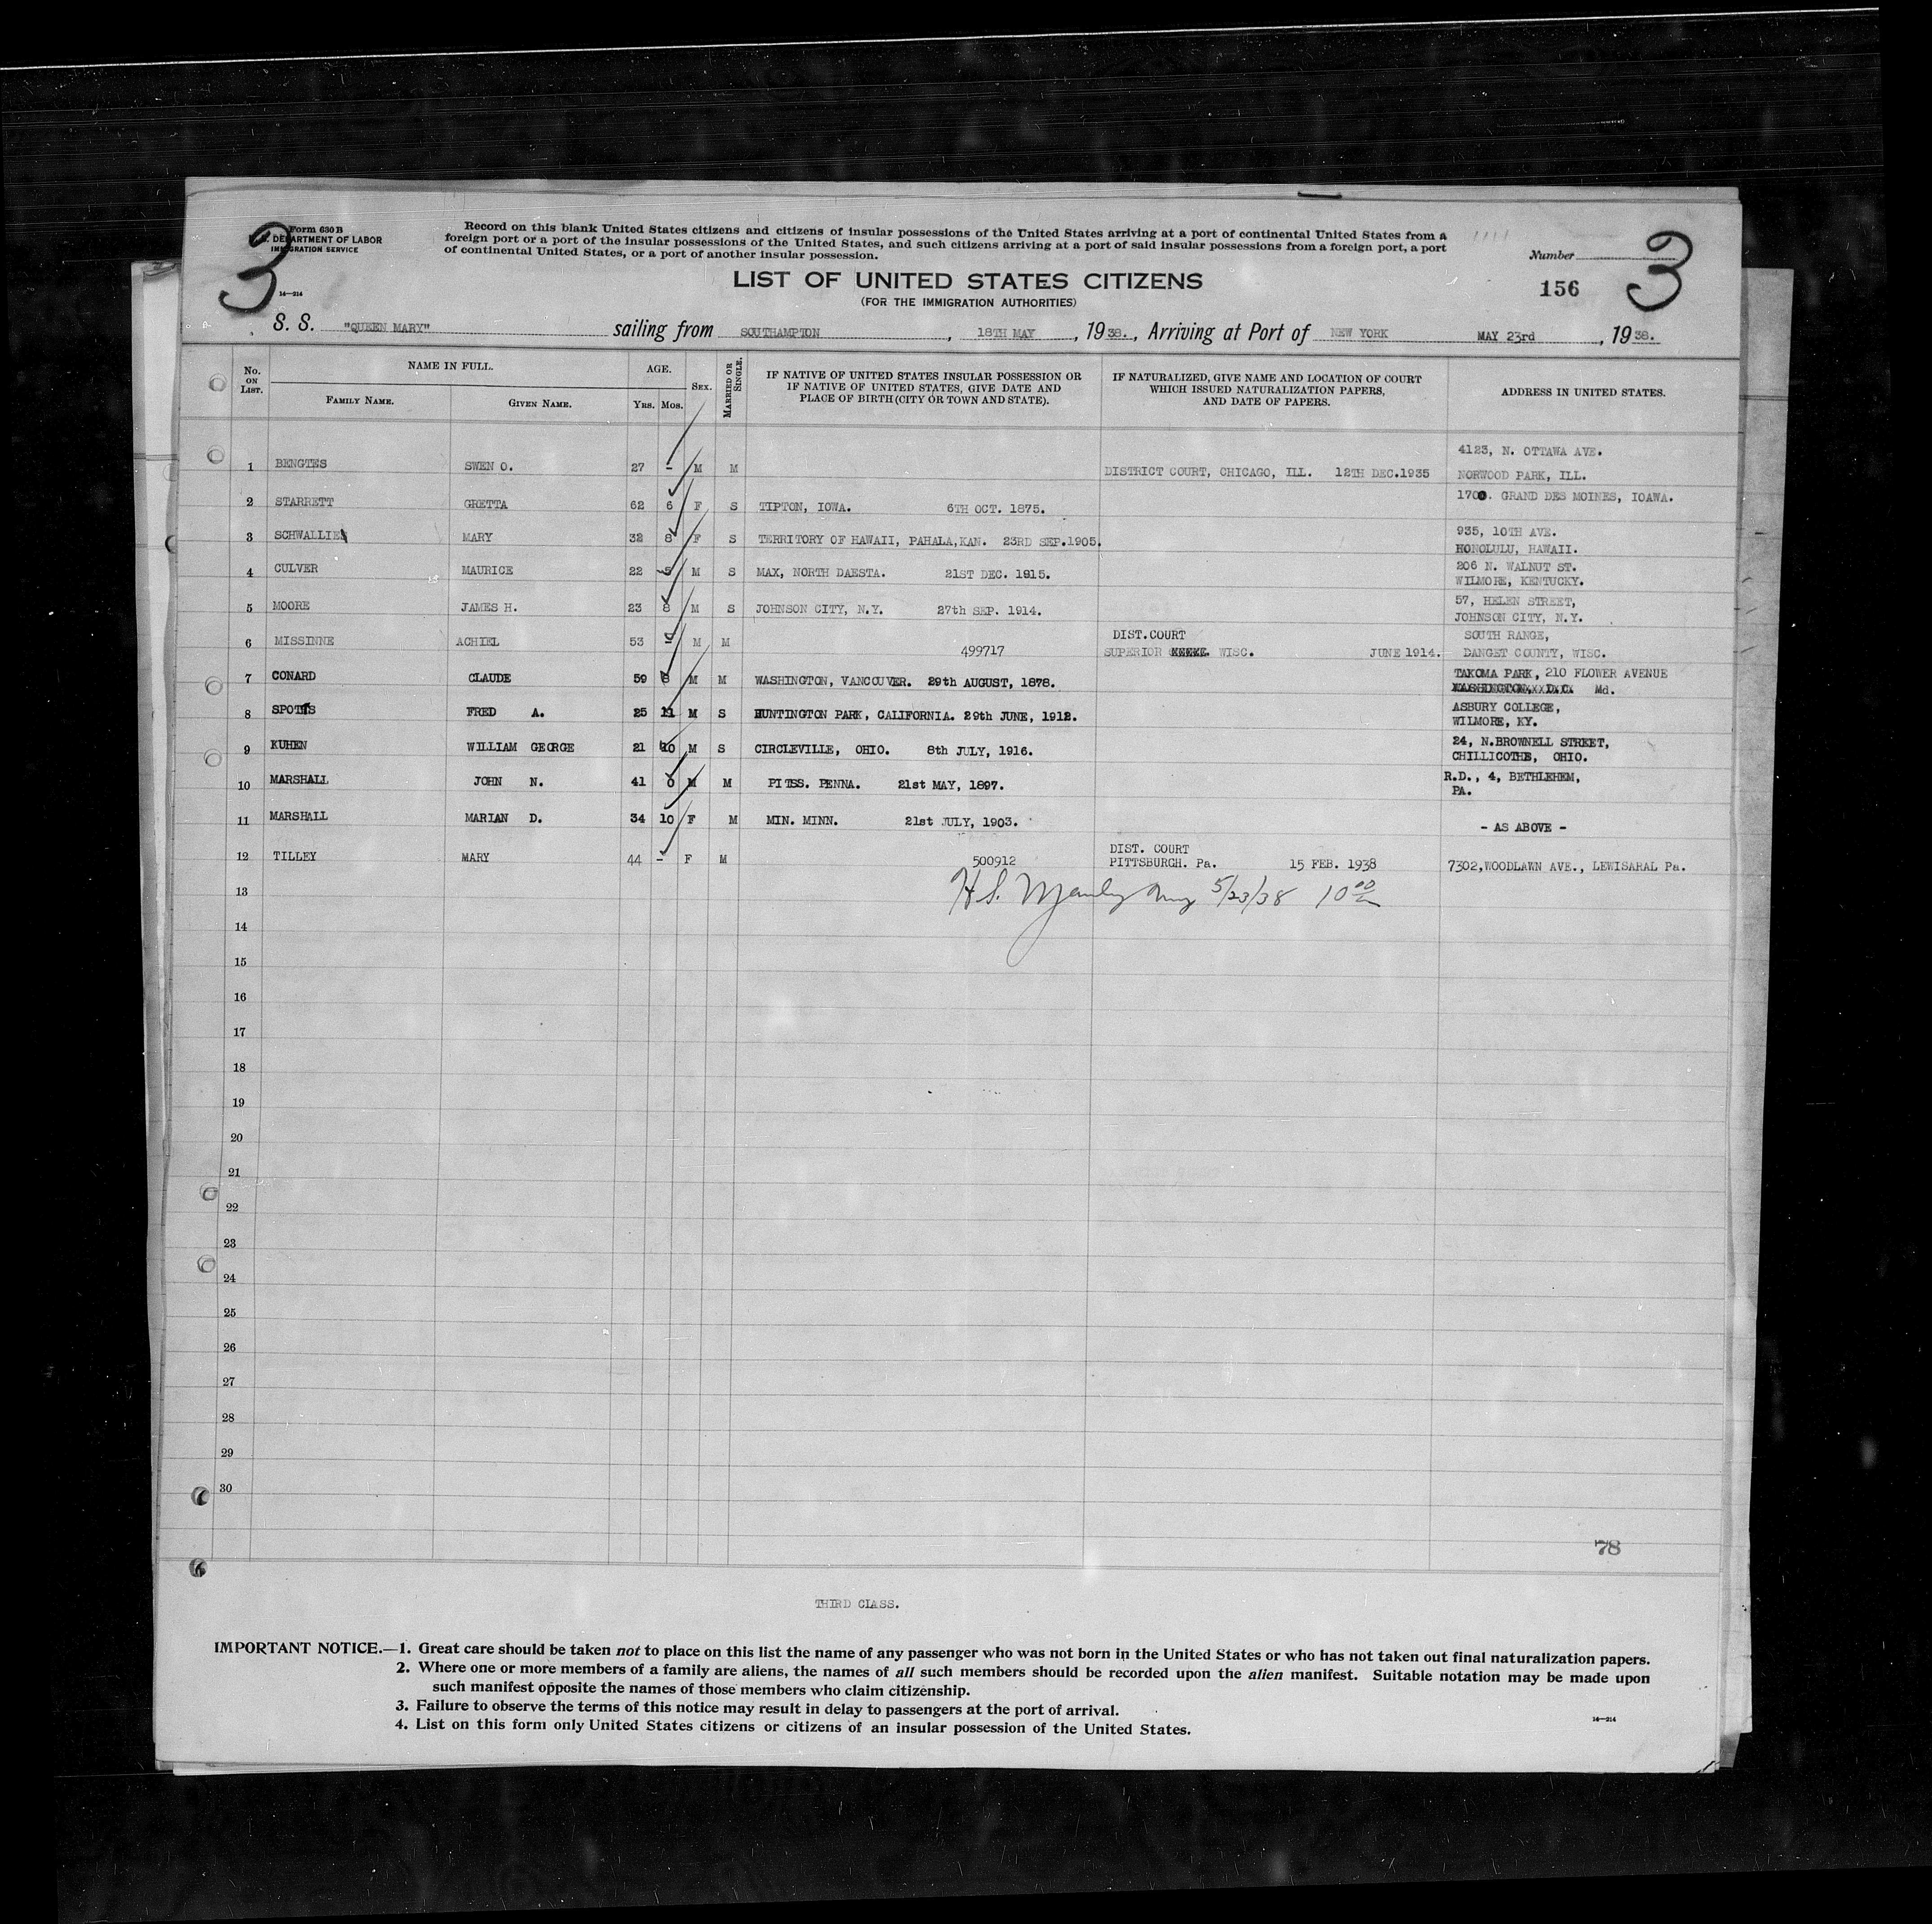 3
Form 630 B
U. S. DEPARTMENT OF LABOR
IMMIGRATION SERVICE
14—214
Record on this blank United States citizens and citizens of insular possessions of the United States arriving at a port of continental United States from a
foreign port or a port of the insular possessions of the United States, and such citizens arriving at a port of said insular possessions from a foreign port, a port
of continental United States, or a port of another insular possession.
Number
156
3
LIST OF UNITED STATES CITIZENS
(FOR THE IMMIGRATION AUTHORITIES)
S. S. "QUEEN MARY" sailing from SOUTHAMPTON, 18TH MAY, 1938., Arriving at Port of NEW YORK MAY 23rd, 1938.
No. ON LIST. NAME IN FULL. FAMILY NAME. GIVEN NAME. AGE. YRS. MOS. SEX. MARRIED OR SINGLE. IF NATIVE OF UNITED STATES INSULAR POSSESSION OR IF NATIVE OF UNITED STATES, GIVE DATE AND PLACE OF BIRTH (CITY OR TOWN AND STATE). IF NATURALIZED, GIVE NAME AND LOCATION OF COURT WHICH ISSUED NATURALIZATION PAPERS, AND DATE OF PAPERS. ADDRESS IN UNITED STATES.
1 BENGTES SWEN O. 27 - M M DISTRICT COURT, CHICAGO, ILL. 12TH DEC.1935 4123, N. OTTAWA AVE. NORWOOD PARK, ILL.
2 STARRETT GRETTA 62 6 F S TIPTON, IOWA. 6TH OCT. 1875. 1700. GRAND DES MOINES, IOAWA.
3 SCHWALLIE MARY 32 8 F S TERRITORY OF HAWAII, PAHALA,KAN. 23RD SEP.1905. 935, 10TH AVE. HONOLULU, HAWAII.
4 CULVER MAURICE 22 5 M S MAX, NORTH DAESTA. 21ST DEC. 1915. 206 N. WALNUT ST. WILMORE, KENTUCKY.
5 MOORE JAMES H. 23 8 M S JOHNSON CITY, N.Y. 27th SEP. 1914. 57, HELEN STREET, JOHNSON CITY, N.Y.
6 MISSINNE ACHIEL 53 M M 499717 DIST.COURT SUPERIOR WISC. JUNE 1914. SOUTH RANGE, DANGET COUNTY, WISC.
7 CONARD CLAUDE 59 8 M M WASHINGTON, VANCOUVER. 29th AUGUST, 1878. TAKOMA PARK, 210 FLOWER AVENUE Md.
8 SPOTTS FRED A. 25 11 M S HUNTINGTON PARK, CALIFORNIA. 29th JUNE, 1912. ASBURY COLLEGE, WILMORE, KY.
9 KUHEN WILLIAM GEORGE 21 10 M S CIRCLEVILLE, OHIO. 8th JULY, 1916. 24, N.BROWNELL STREET, CHILLICOTHE, OHIO.
10 MARSHALL JOHN N. 41 0 M M PITSS. PENNA. 21st MAY, 1897. R.D., 4, BETHLEHEM, PA.
11 MARSHALL MARIAN D. 34 10 F M MIN. MINN. 21st JULY, 1903. - AS ABOVE -
12 TILLEY MARY 44 - F M 500912 DIST. COURT PITTSBURGH. Pa. 15 FEB. 1938 7302,WOODLAWN AVE., LEWISARAL Pa.
13 H.S. 5/23/38 10 00
14
15
16
17
18
19
20
21
22
23
24
25
26
27
28
29
30
78
THIRD CLASS.
IMPORTANT NOTICE.—1. Great care should be taken not to place on this list the name of any passenger who was not born in the United States or who has not taken out final naturalization papers.
2. Where one or more members of a family are aliens, the names of all such members should be recorded upon the alien manifest. Suitable notation may be made upon
such manifest opposite the names of those members who claim citizenship.
3. Failure to observe the terms of this notice may result in delay to passengers at the port of arrival.
4. List on this form only United States citizens or citizens of an insular possession of the United States.
14—214